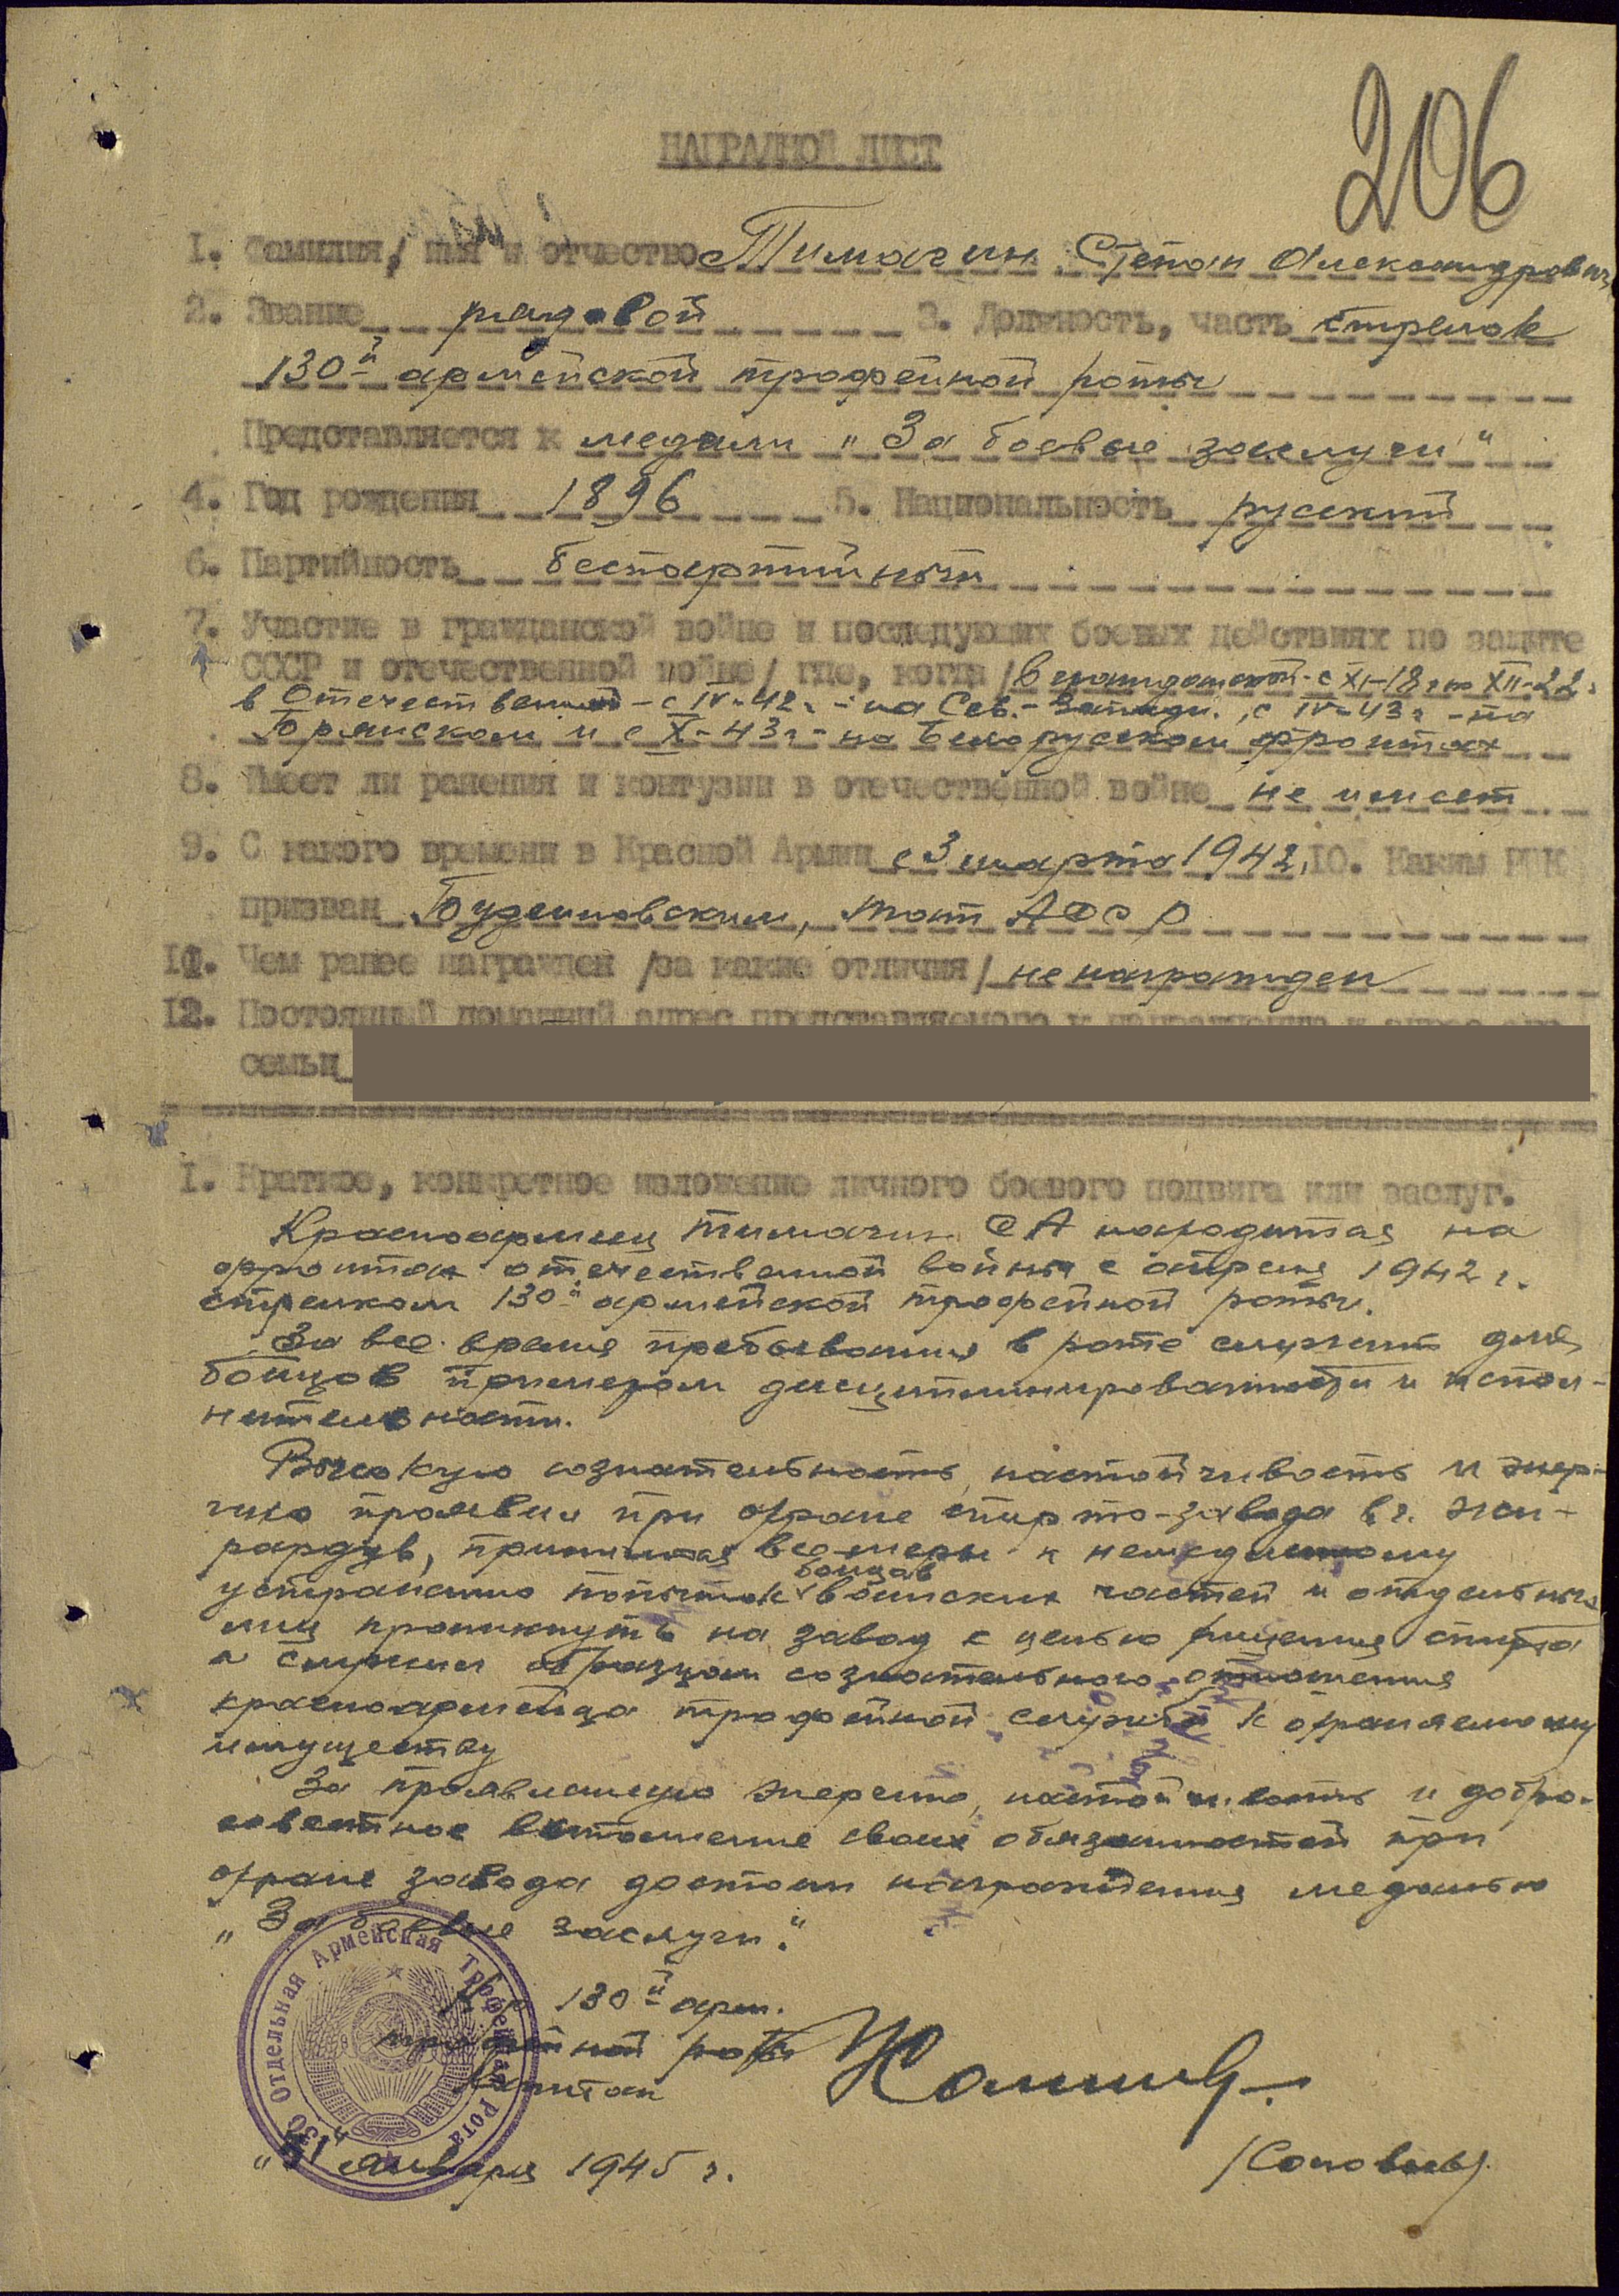 206
НАГРАДНОЙ ЛИСТ
1. Фамилия, имя и отчество Тимагин Степан Александрович
2. Звание рядовой 3. Должность, часть стрелок
130й армейской трофейной роты
Представляется к медали „За боевые заслуги"
4. Год рождения 1896 5. Национальность русский
6. Партийность беспартийный
7. Участие в гражданской войне и последующих боевых действиях по защите
СССР и отечественной войне /где, когда/ в гражданской - с XI-18 г по XII-22г
в Отечественной - с IV-42 г - на Сев.-Западн., с IV-43 г - на
Брянском и с X-43 г - на Белорусском фронтах
8. Имеет ли ранения и контузии в отечественной войне не имеет
9. С какого времени в Красной Армии с 3 марта 1942, 10. Каким РВК
призван Буденновским, АССР
11. Чем ранее награжден /за какие отличия/ не награжден
12. Постоянный домашний адрес представляемого к награждению и адрес его
семьи
1. Краткое, конкретное изложение личного боевого подвига или заслуг.
Красноармеец Тимагин СА находится на
фронтах отечественной войны с апреля 1942 г.
стрелком 130й армейской трофейной роты.
За все время пребывания в роте служит для
бойцов примером дисциплинированности и испол-
нительности.
Высокую сознательность, настойчивость и энер-
гию проявил при охране спирто-завода в г. Жи-
рардув, принимая все меры к немедленному
устранению попыток бойцов воинских частей и отдельных
лиц проникнуть на завод с целью хищения спирта
и служил образцом сознательного отношения
красноармейца трофейной службы к охраняемому
имуществу
За проявленную энергию, настойчивость и добро-
совестное выполнение своих обязанностей при
охране завода достоин награждения медалью
„За боевые заслуги".
130й арм.
трофейной роты
Капитан
/Соловьев/
„31" января 1945 г.
130 Отдельная Армейская Трофейная Рота